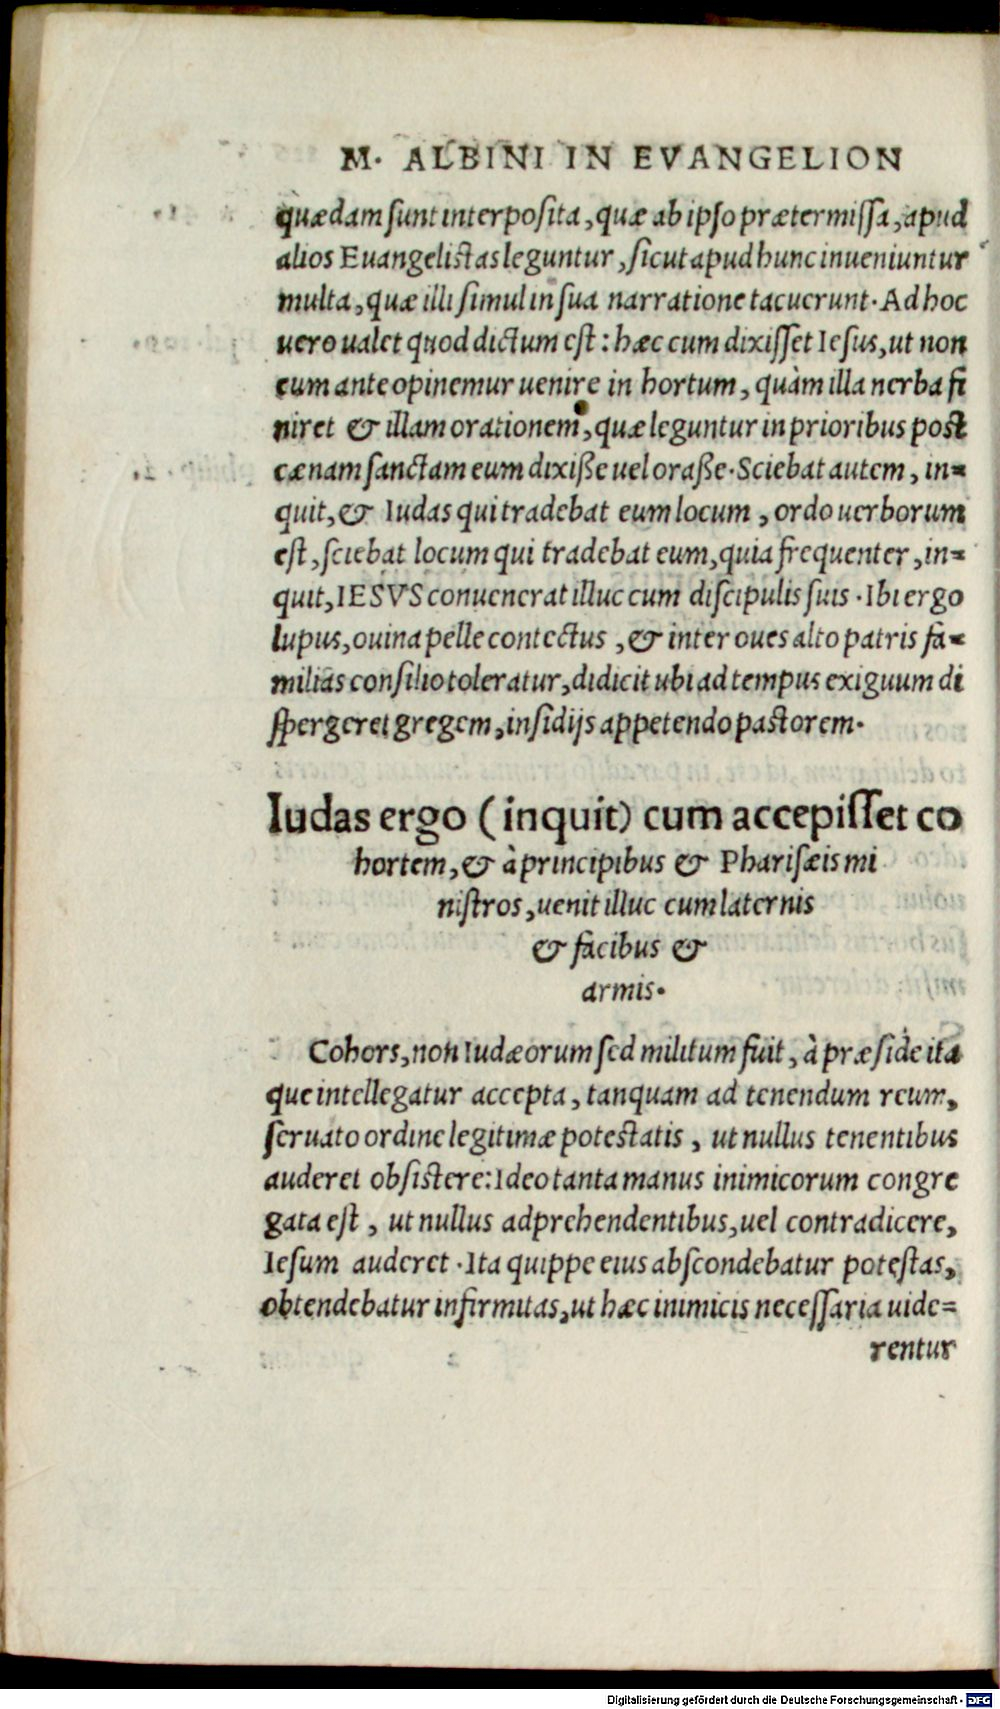 M. ALBINI IN EVANGELION
quædam sunt interposita, quæ ab ipso prætermissa, apud
alios Euangelistas leguntur, sicut apud hunc inueniuntur
multa, quæ illi simul in sua narratione tacuerunt. Ad hoc
uero ualet quod dictum est: hæc cum dixisset Iesus, ut non
eum ante opinemur uenire in hortum, quàm illa uerba fi
niret & illam orationem, quæ leguntur in prioribus post
cænam sanctam eum dixiße uel oraße. Sciebat autem, in=
quit, & Iudas qui tradebat eum locum, ordo uerborum
est, sciebat locum qui tradebat eum, quia frequenter, in=
quit, IESVS conuenerat illuc cum discipulis suis. Ibi ergo
lupus, ouina pelle contectus, & inter oues alto patris fa=
milias consilio toleratur, didicit ubi ad tempus exiguum di
spergeret gregem, insidijs appetendo pastorem.
Iudas ergo (inquit) cum accepisset co
hortem, & à principibus & Pharisæis mi
nistros, uenit illuc cum laternis
& facibus &
armis.
Cohors, non Iudæorum sed militum fuit, à præside ita
que intellegatur accepta, tanquam ad tenendum reum,
seruato ordine legitimæ potestatis, ut nullus tenentibus
auderet obsistere: Ideo tanta manus inimicorum congre
gata est, ut nullus adprehendentibus, uel contradicere,
Iesum auderet. Ita quippe eius abscondebatur potestas,
obtendebatur infirmitas, ut hæc inimicis necessaria uide=
rentur
Digitalisierung gefördert durch die Deutsche Forschungsgemeinschaft - DFG